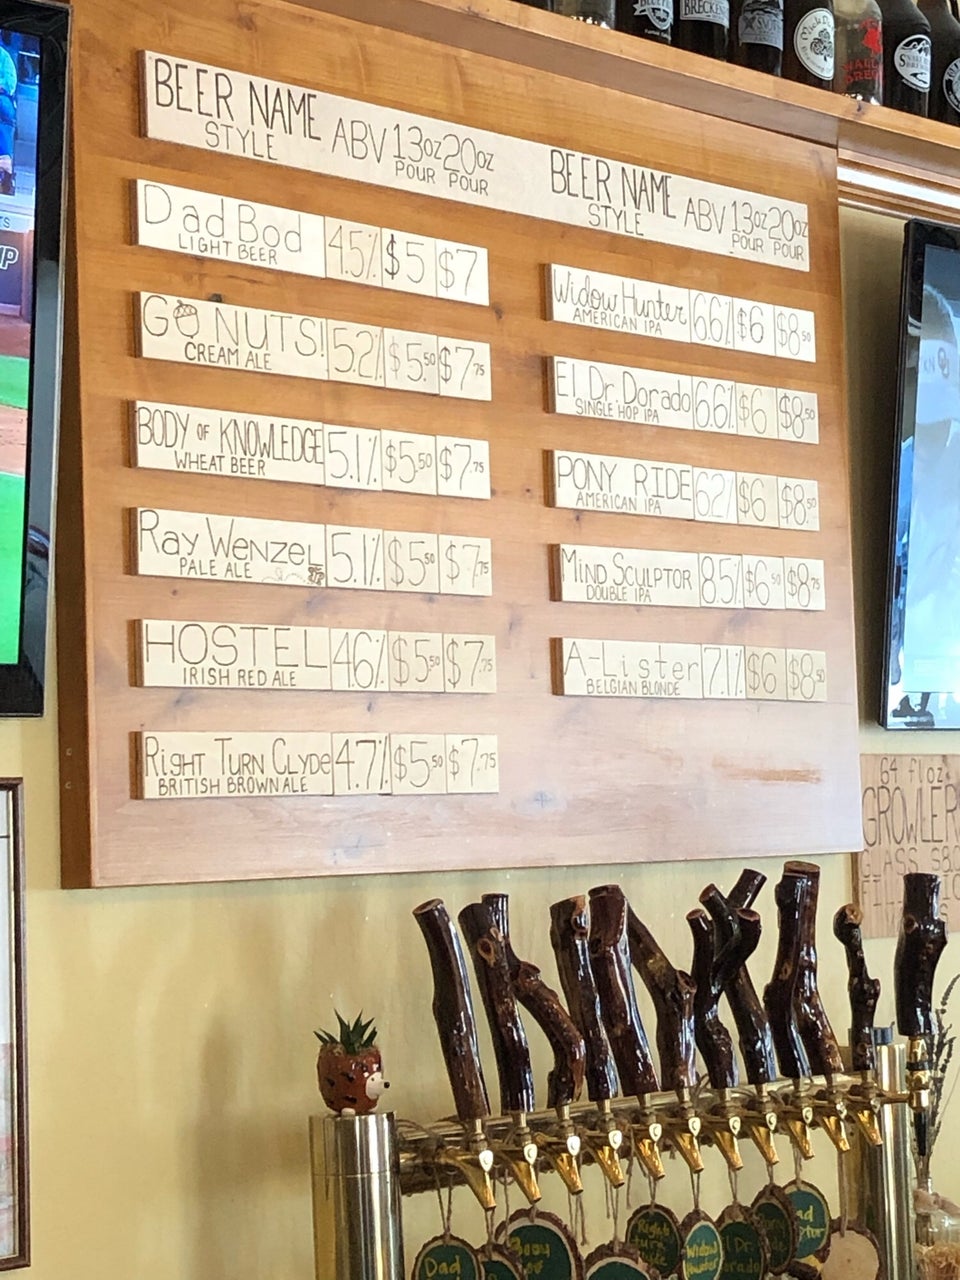 BEER NAME ABV 13oz 20oz
STYLE POUR POUR
Dad Bod 4.5% $5 $7
LIGHT BEER
GO NUTS! 5.2% $5.50 $7.75
CREAM ALE
BODY OF KNOWLEDGE 5.1% $5.50 $7.75
WHEAT BEER
Ray Wenzel 5.1% $5.50 $7.75
PALE ALE
HOSTEL 4.6% $5.50 $7.75
IRISH RED ALE
Right Turn Clyde 4.7% $5.50 $7.75
BRITISH BROWN ALE
BEER NAME ABV 13oz 20oz
STYLE POUR POUR
Widow Hunter 6.6% $6 $8.50
AMERICAN IPA
El Dr. Dorado 6.6% $6 $8.50
SINGLE HOP IPA
PONY RIDE 6.2% $6 $8.50
AMERICAN IPA
Mind Sculptor 8.5% $6.50 $8.75
DOUBLE IPA
A-Lister 7.1% $6 $8.50
BELGIAN BLONDE
64 fl oz.
GROWLER
GLASS
Dad
Body
Right
Turn
Widow
Hunter
El Dr.